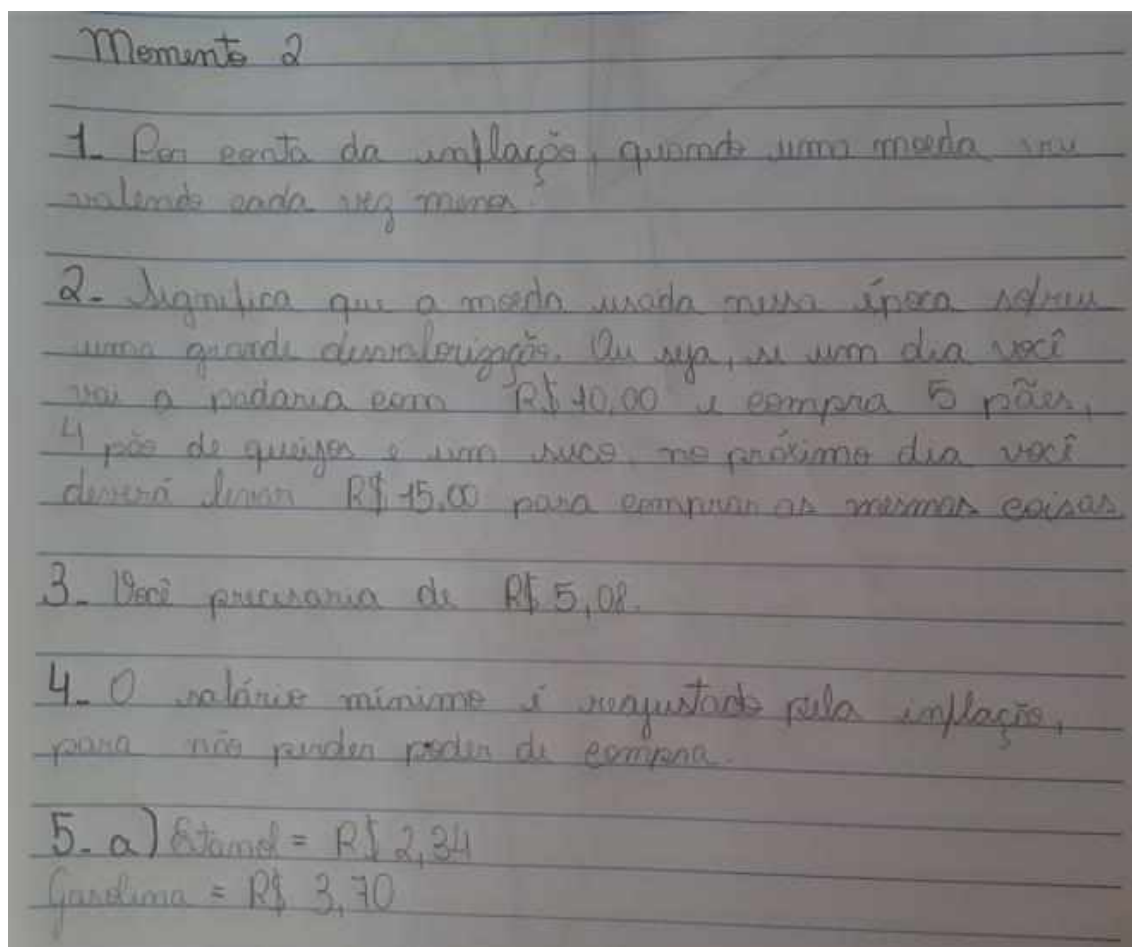 Momento 2
1- Por conta da inflação, quando uma moeda vai
valendo cada vez menos.
2- Significa que a moeda usada nessa época sofreu
uma grande desvalorização. Ou seja, se um dia você
vai a padaria com R$ 10,00 e compra 5 pães,
4 pão de queijos e um suco, no próximo dia você
deverá levar R$ 15,00 para comprar as mesmas coisas
3- Você precisaria de R$ 5,08.
4- O salário mínimo é reajustado pela inflação,
para não perder poder de compra.
5- a) Etanol = R$ 2,34
Gasolina = R$ 3,70